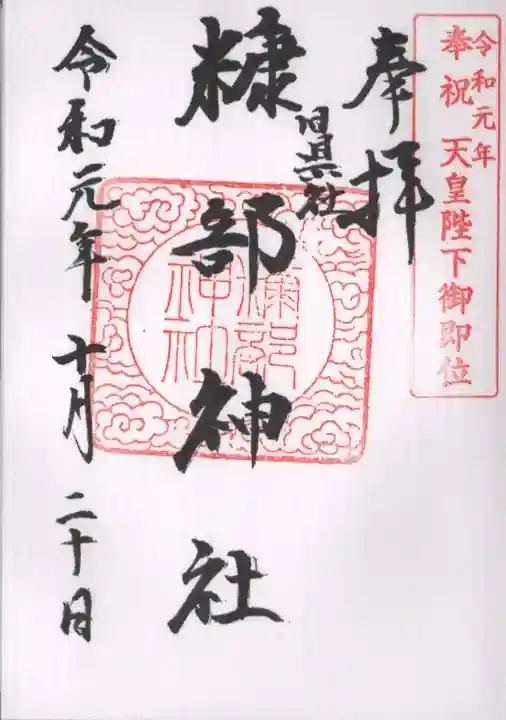 令和元年
奉祝 天皇陛下御即位
奉拝
旧県社
糠部神社
糠部神社
令和元年 十月 二十日